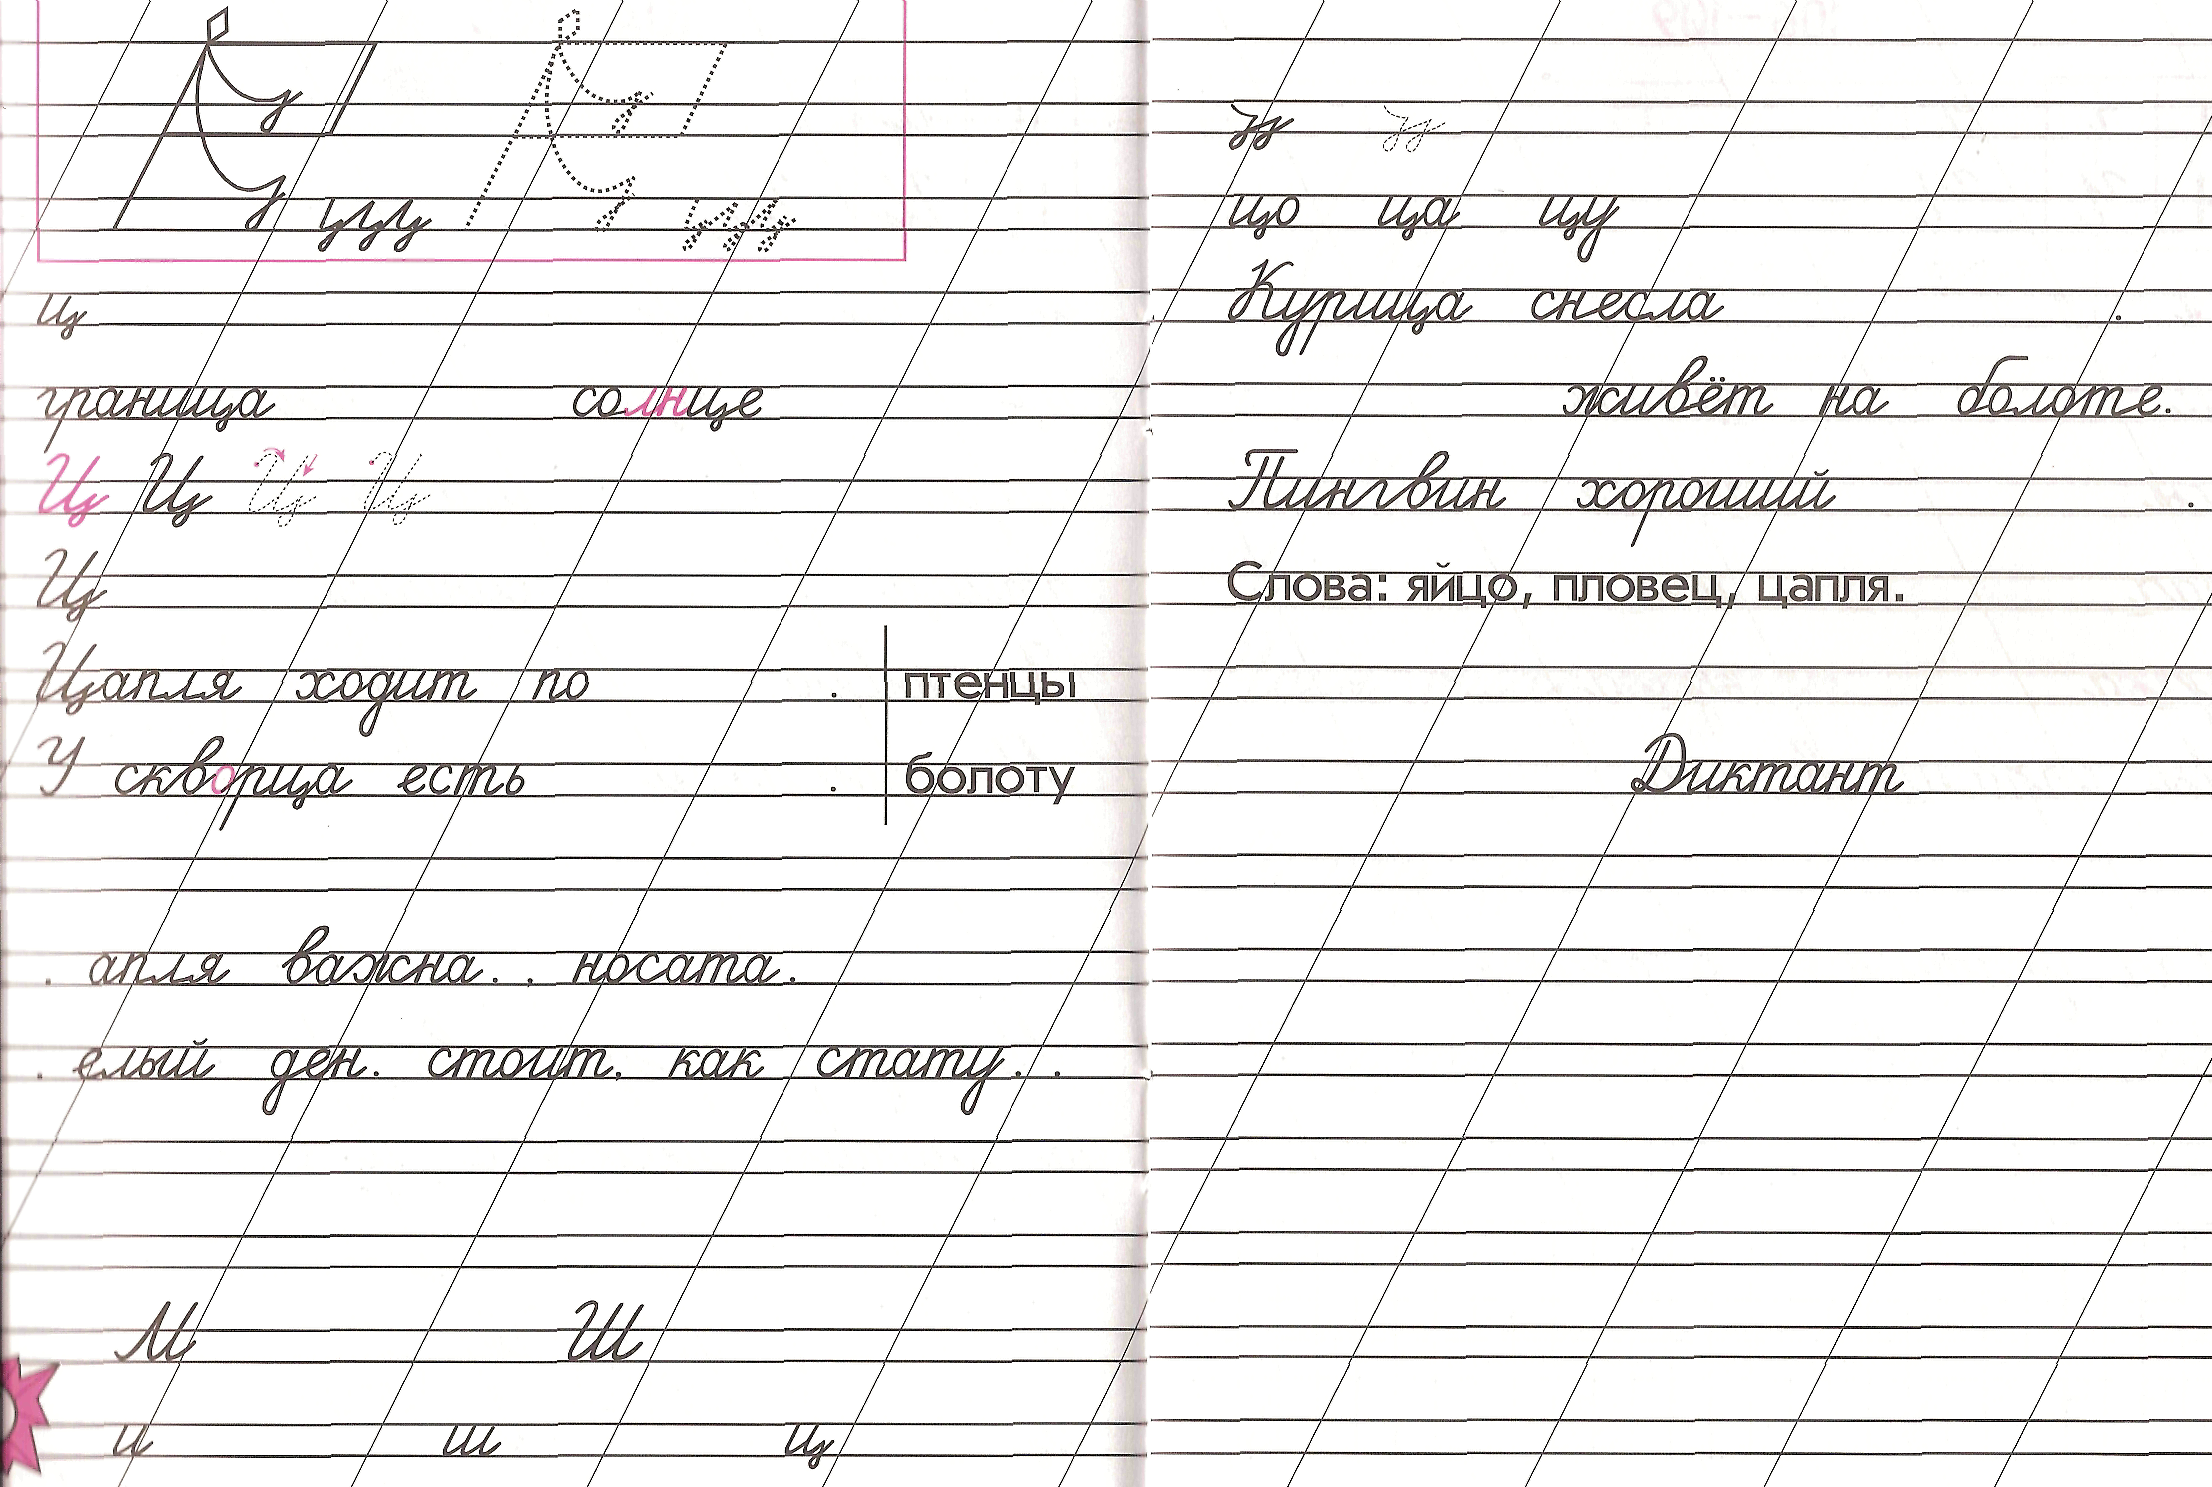 ц
граница солнце
Ц Ц Ц Ц
Ц
Цапля ходит по . птенцы
У скворца есть . болоту
. апля важна. . носата.
. елый ден. стоит. как стату. .
М Ш
и ш ц
цо ца цу
Курица снесла .
живёт на болоте.
Пингвин хороший .
Слова: яйцо, пловец, цапля.
Диктант